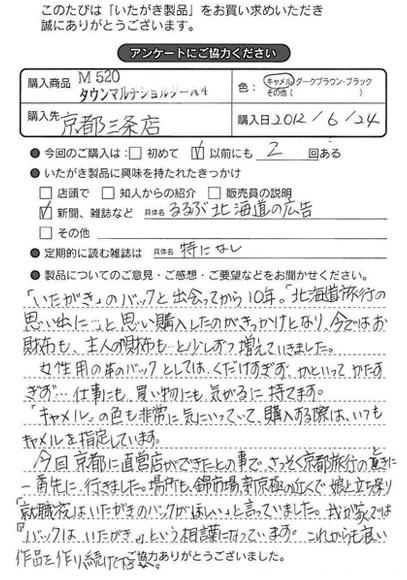 このたびは「いたがき製品」をお買い求めいただき
誠にありがとうございます。
アンケートにご協力ください
購入商品 M520
タウンマルチショルダーA4
色：キャメル・ダークブラウン・ブラック
その他（ ）
購入先 京都三条店
購入日 2012/6/24
● 今回のご購入は：□ 初めて ☑ 以前にも 2 回ある
● いたがき製品に興味を持たれたきっかけ
□ 店頭で □ 知人からの紹介 □ 販売員の説明
☑ 新聞、雑誌など 具体名 るるぶ北海道の広告
□ その他
● 定期的に読む雑誌は 具体名 特になし
● 製品についてのご意見・ご感想・ご要望などをお聞かせください。
「いたがき」のバックと出会ってから10年。「北海道旅行の
思い出に…」と思い購入したのがきっかけとなり、今ではお
財布も、主人の財布も…と少しずつ増えていきました。
女性用の革のバックとしては、くだけすぎず、かといってかたす
ぎず…仕事にも、買い物にも気がるに持てます。
「キャメル」の色も非常に気にいっていて、購入する際は、いつも
キャメルを指定しています。
今回京都に直営店ができたとの事で、さっそく京都旅行の
一番先に行きました。場所も、錦市場、新京極の近くで娘と立ち寄り
「就職祝はいたがきのバックがほしい」と言っていました。我が家では
「バックはいたがき」という相談になっています。これからも良い
作品を作り続けて下さい。
ご協力ありがとうございました。